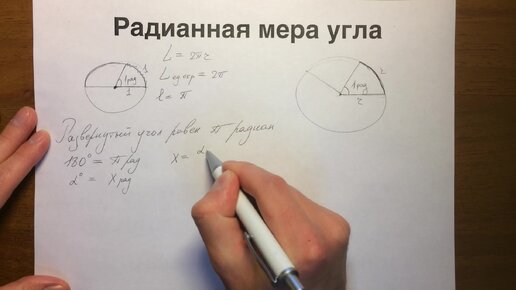 Радианная мера угла
L = 2πr
L ед окр = 2π
l = π
1 рад
1
1
1 рад
r
r
Развернутый угол равен π радиан
180° = π рад
α° = x рад
x = α